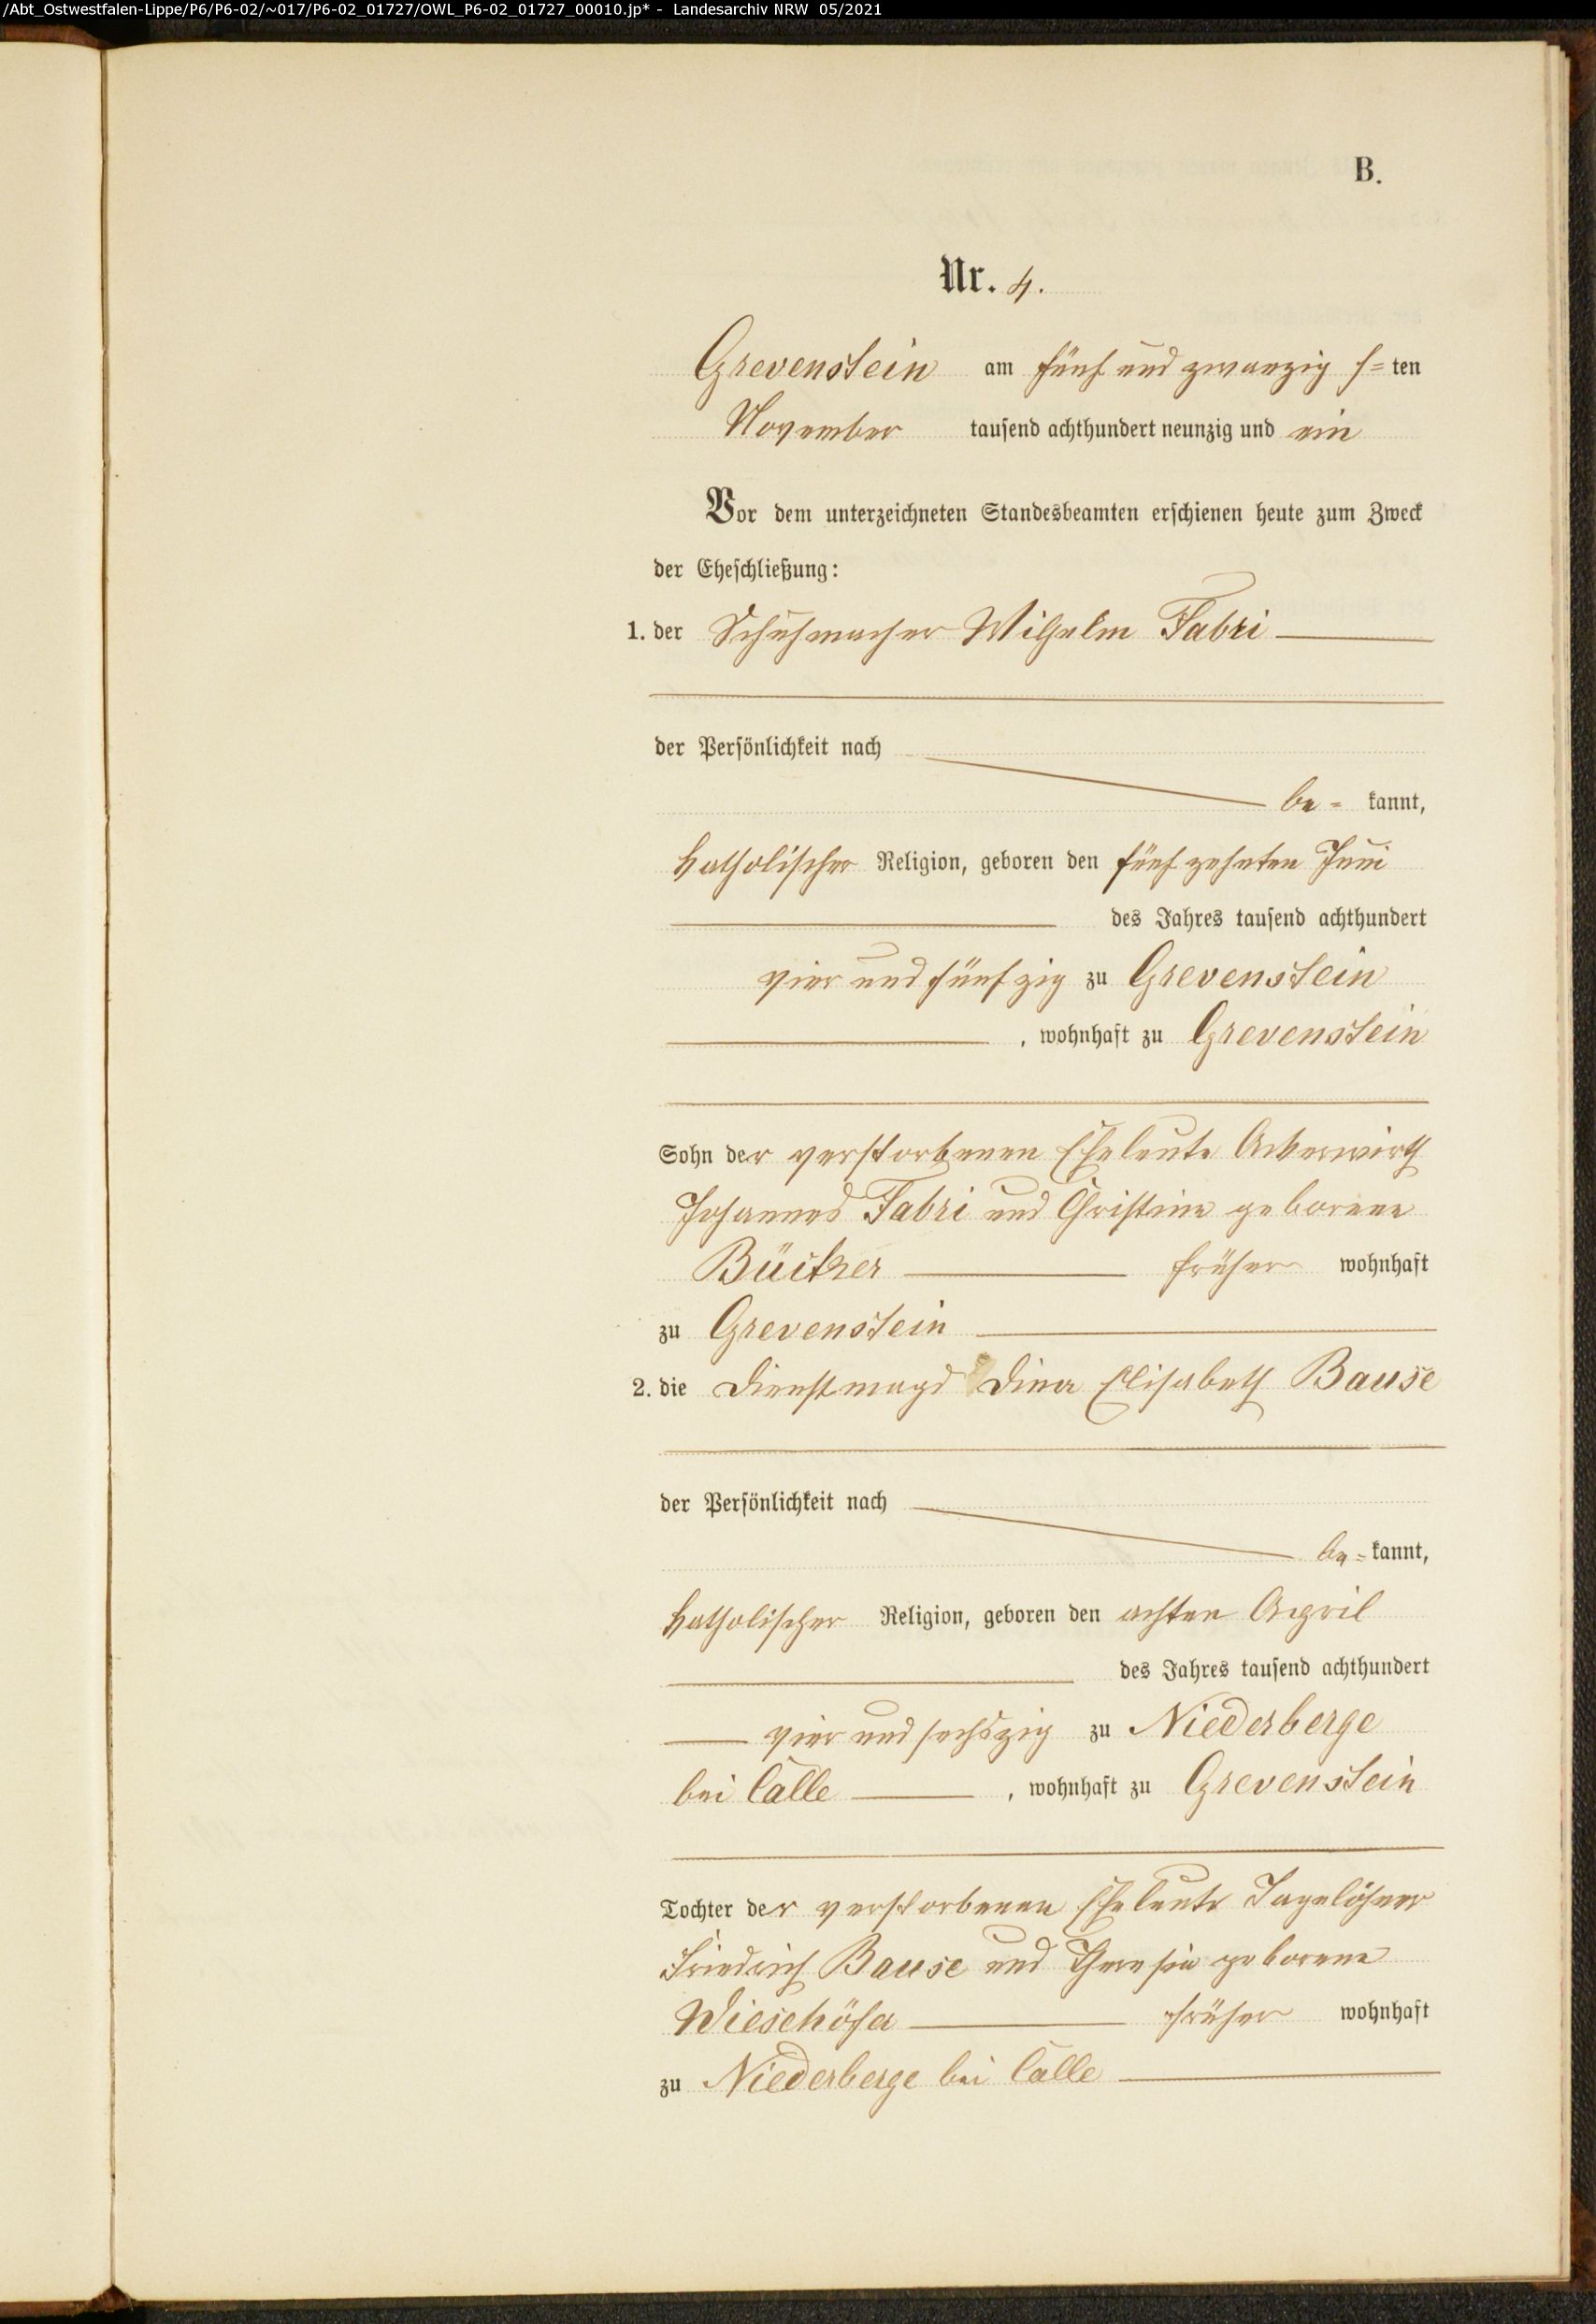 /Abt_Ostwestfalen-Lippe/P6/P6-02/~017/P6-02_01727/OWL_P6-02_01727_00010.jp* - Landesarchiv NRW 05/2021
B.
Nr. 4.
Grevenstein am fünf und zwanzig s=ten
November tausend achthundert neunzig und ein
Vor dem unterzeichneten Standesbeamten erschienen heute zum Zweck
der Eheschließung:
1. der Schuhmacher Wilhelm Fabri
der Persönlichkeit nach
be= kannt,
katholischer Religion, geboren den fünfzehnten Juni
des Jahres tausend achthundert
vier und fünfzig zu Grevenstein
, wohnhaft zu Grevenstein
Sohn der verstorbenen Eheleute Ackerwirth
Johannes Fabri und Christine geborene
Bücker früher wohnhaft
zu Grevenstein
2. die Dienstmagd Dina Elisabeth Bause
der Persönlichkeit nach
be= kannt,
katholischer Religion, geboren den achten April
des Jahres tausend achthundert
vier und sechszig zu Niederberge
bei Calle , wohnhaft zu Grevenstein
Tochter der verstorbenen Eheleute Tagelöhner
Friedrich Bause und Theresia geborene
Wieschöfer früher wohnhaft
zu Niederberge bei Calle